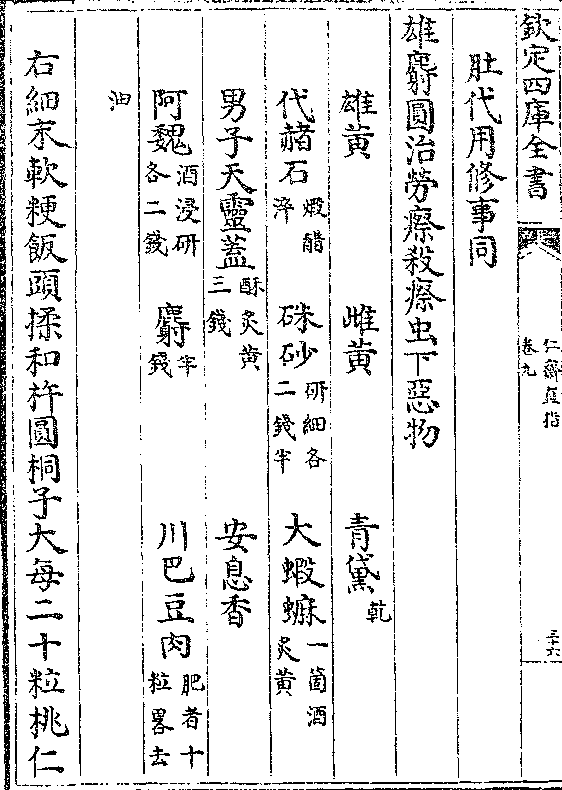 欽定四庫全書
仁齋直指
卷九
三十六
肚代用修事同
雄麝圓治勞瘵殺瘵虫下惡物
雄黃 雌黃 青黛乾
代赭石煅醋淬 硃砂研細各二錢半 大蝦蟆一箇酒炙黃
男子天靈蓋酥炙黃三錢 安息香
阿魏酒浸研各二錢 麝半錢 川巴豆肉肥者十粒畧去
油
右細末軟粳飯頭揉和杵圓桐子大每二十粒桃仁